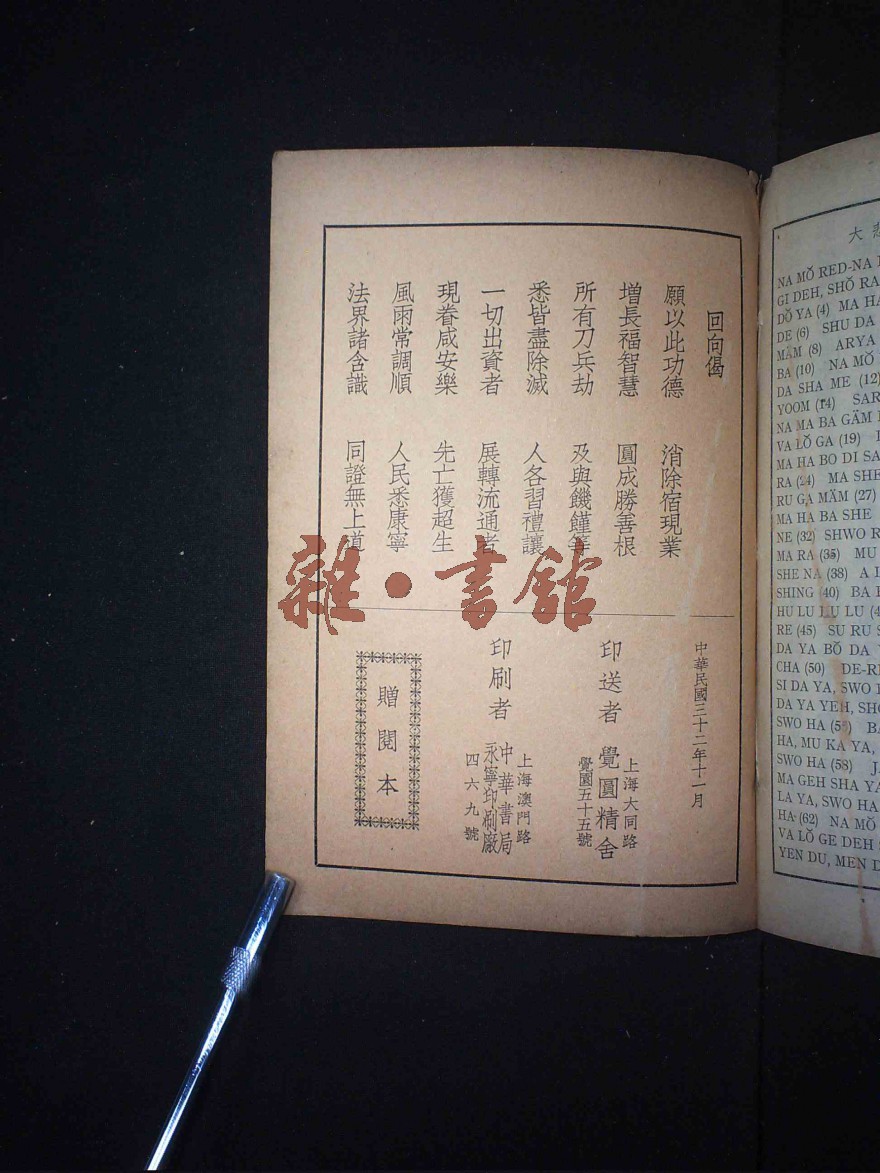 回向偈
願以此功德 消除宿現業
增長福智慧 圓成勝善根
所有刀兵劫 及與饑饉等
悉皆盡除滅 人各習禮讓
一切出資者 展轉流通者
現眷咸安樂 先亡獲超生
風雨常調順 人民悉康寧
法界諸含識 同證無上道
中華民國三十二年十一月
印送者 覺圓精舍
上海大同路
覺園五十五號
印刷者
中華書局
永寧印刷廠
上海澳門路
四六九號
贈閱本
雜·書館
大悲
NA MŎ RED-NA
GI DEH, SHŎ RA
DŎ YA (4) MA HA
DE (6) SHU DA
MÄM (8) ARYA
BA (10) NA MŎ
DA SHA ME (12)
YOOM (14) SAR
NA MA BA GÄM
VA LŎ GA (19)
MA HA BO DI SA
RA (24) MA SHE
RU GA MÄM (27)
MA HA BA SHE
NE (32) SHWO R
MA RA (35) MU
SHE NA (38) A
SHING (40) BA
HU LU LU LU
RE (45) SU RU S
DA YA BŎ DA
CHA (50) DE-RE
SI DA YA, SWO
DA YA YEH, SHŎ
SWO HA BA
HA, MU KA YA,
SWO HA (58) J
MA GEH SHA YA
LA YA, SWO HA
HA (62) NA MŎ
VA LŎ GE DEH
YEN DU, MEN D